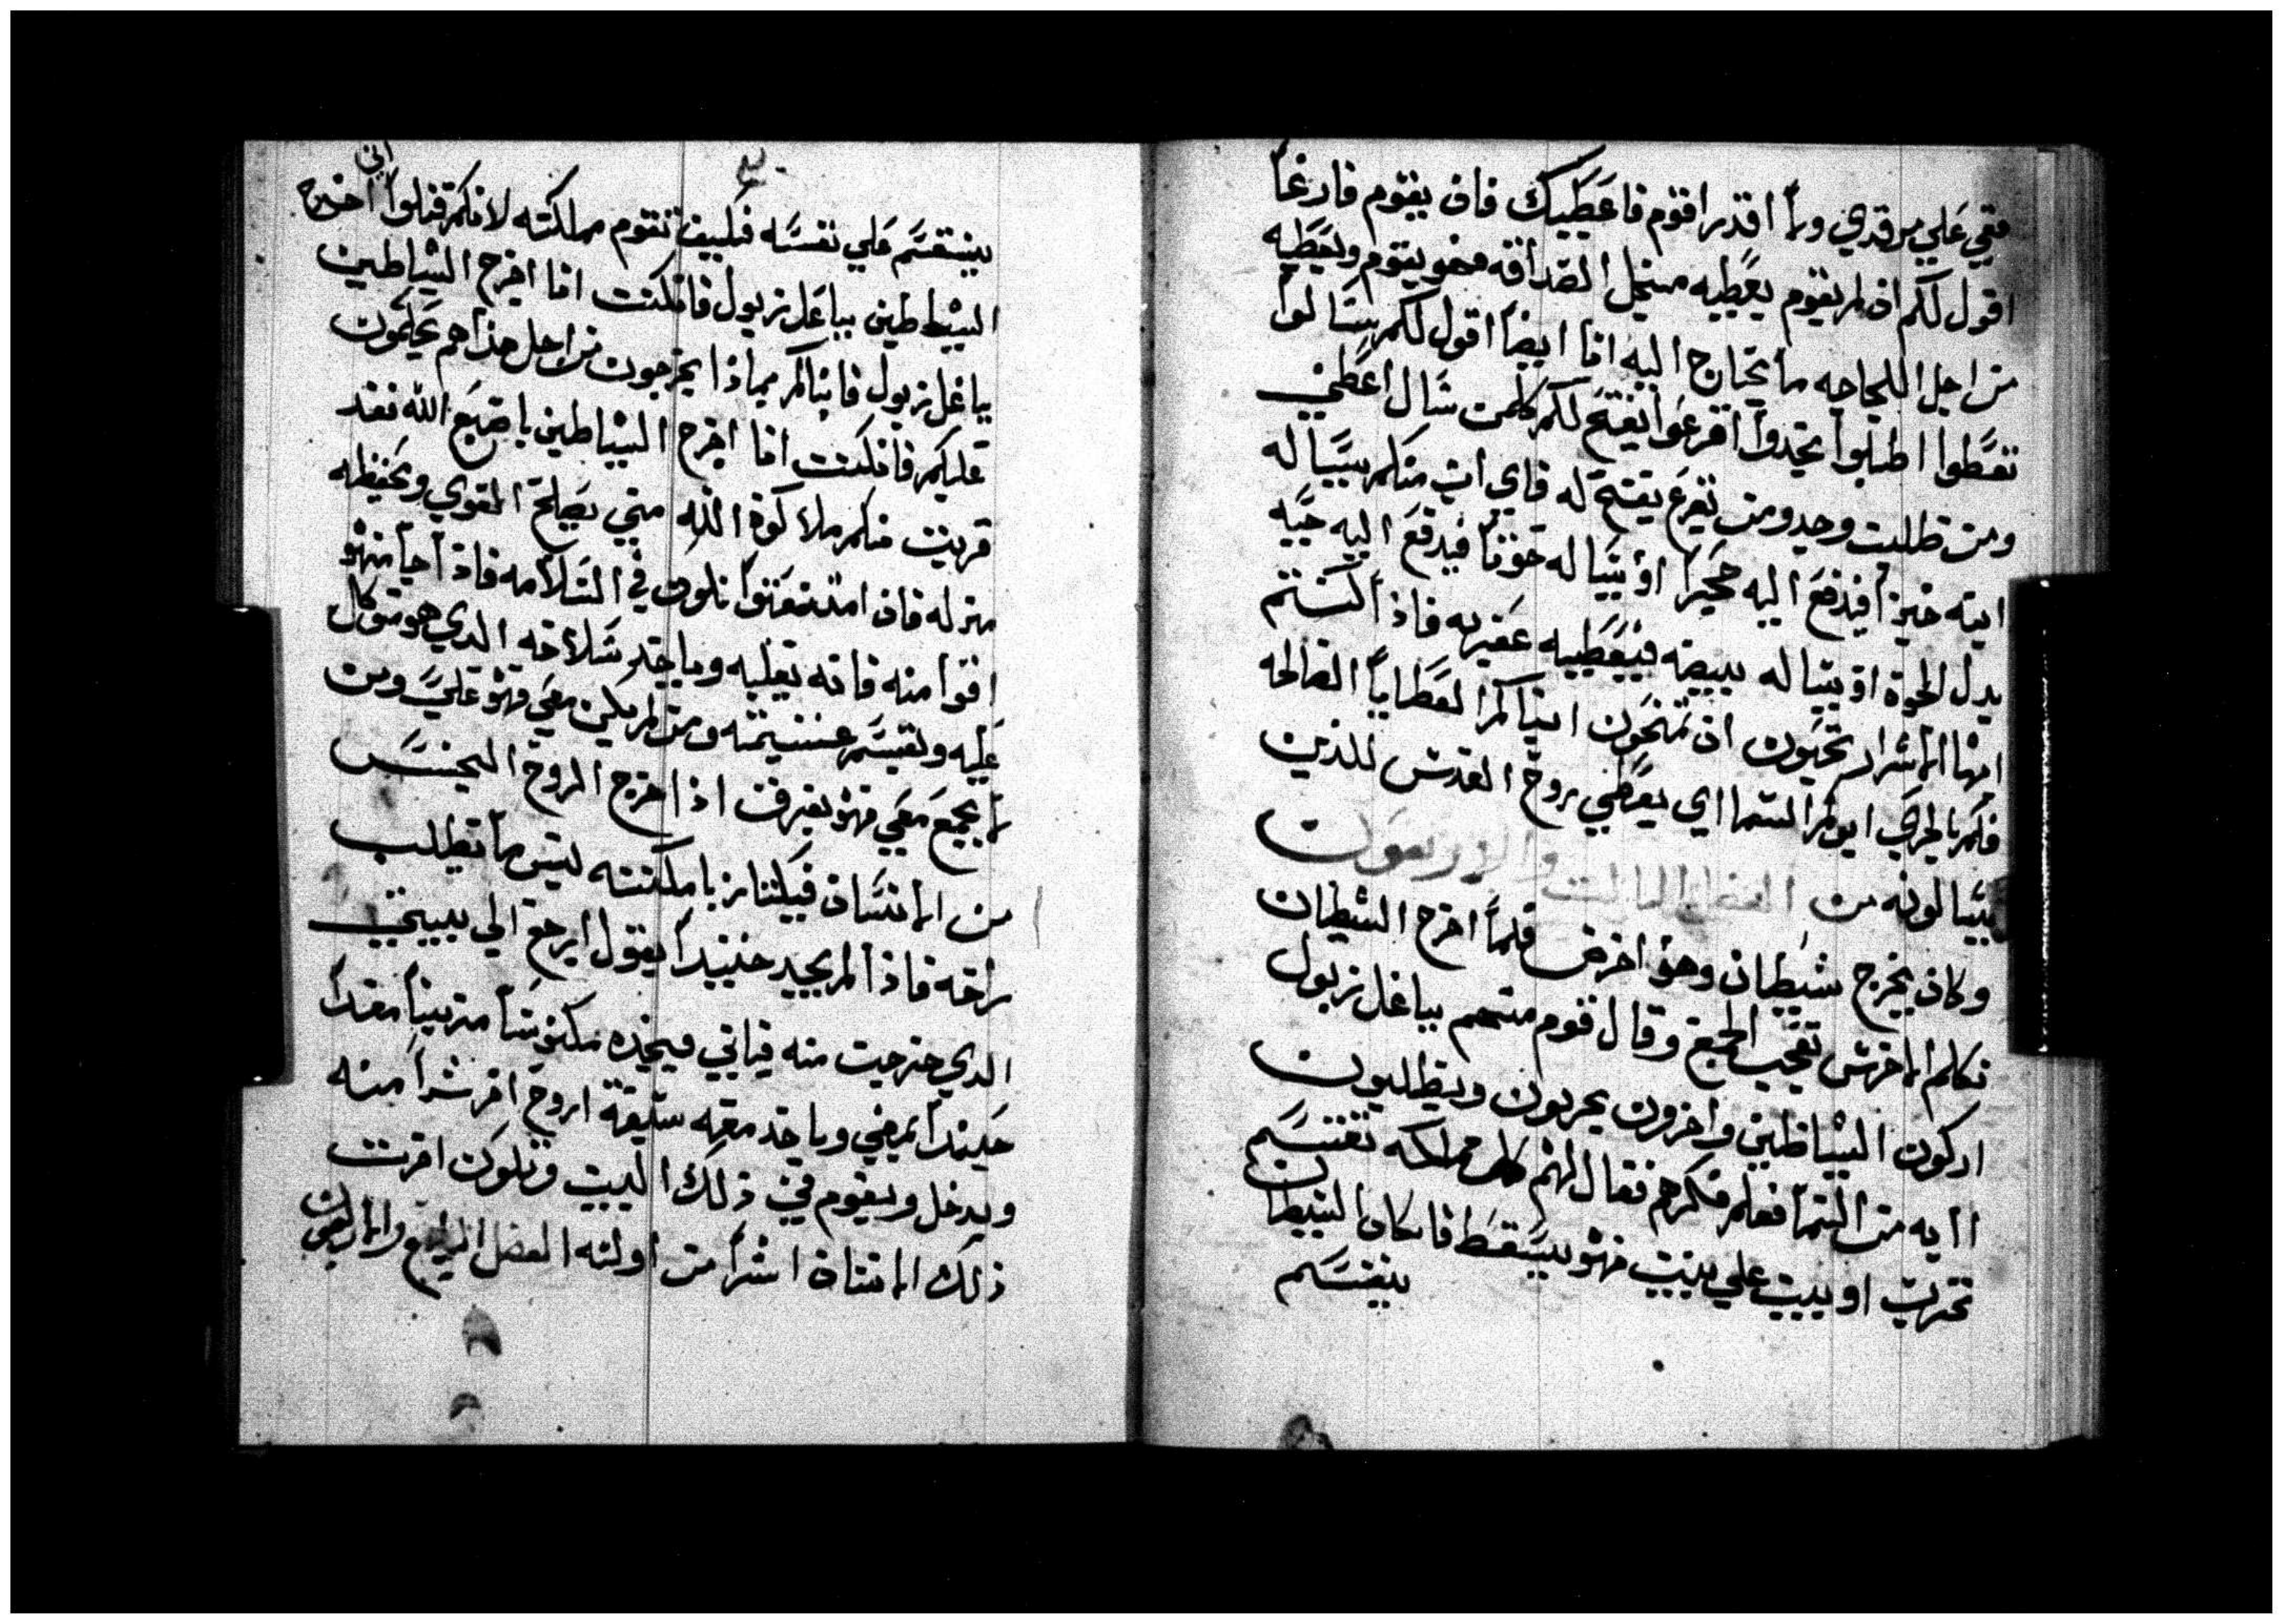 معي علي مرقدي ولا اقدر اقوم فاعطيك فان يقوم فارغا
اقول لكم ان لم يقوم يعطيه منجل الصداقه فهو يقوم ويعطيه
من اجل اللجاجه ما يحتاج اليه انا ايضا اقول لكم يسالوا
تعطوا اطلبوا تجدوا اقرعوا يفتح لكم كلمن سال اعطي
ومن طلب وجد ومن يقرع يفتح له فاي اب منكم يساله
ابنه خبزا فيدفع اليه حجيرا او يساله حوتا فيدفع اليه حيه
بدل الحوة او يساله بييضه فيعطيه عقربه فاذا كنتم
ايها الاشرار تحبون ان تمنحون ابناكم العطايا الصالحه
فكم بالحري ابوكم السما اي يعطي روح القدس للذين
يسالونه من الفصل الثالث والاربعون
وكان يخرج شيطان وهو اخرس فلما اخرج الشيطان
تكلم الاخرس تعجب الجمع وقال قوم منهم بباعل زبول
اركون الشياطين واخرون يجربون ويطلبون
اايه من السما فعلم فكرهم فقال لهم كل مملكه تنقسم
تخرب او بيت علي بييت فهو يسقط فان كان الشيطان
ينقسم
ينقسم علي نفسه فكييف تقوم مملكته لانكم قلوا اني اخرج
الشياطين بباعل زبول فان كنت انا اخرج الشياطين
بباعل زبول فابناكم بماذا يخرجون من اجل هذا هم يحكمون
عليكم فان كنت انا اخرج الشياطين باصبع الله فقد
قربت منكم ملاكوة الله متي يصلح القوي ويحفظه
منزله فان امتعته تكون في السلامه فاذا جا منهو
اقوا منه فانه يغلبه وياخد سلاحه الدي هو متوكل
عليه ويقسم غنييمته ومن لم يكن معي فهو علي ومن
لا يجمع معي فهو يفرق اذا خرج الروح النجس
من الانسان فيلتا بامكنته ليس ما يطلب
راحه فاذا لم يجيد حنيندا يقول ارجع الي بييتي
الدي خرجت منه فياتي فيجده مكنوسا مزينا معدا
حنيندا يمضي وياخد معه سبعة اروح اخر شرا منه
ويدخل ويقوم في ذلك البيت وتكون اخرت
ذلك الانسان اشرا من اولته الفصل الرابع والاربعون